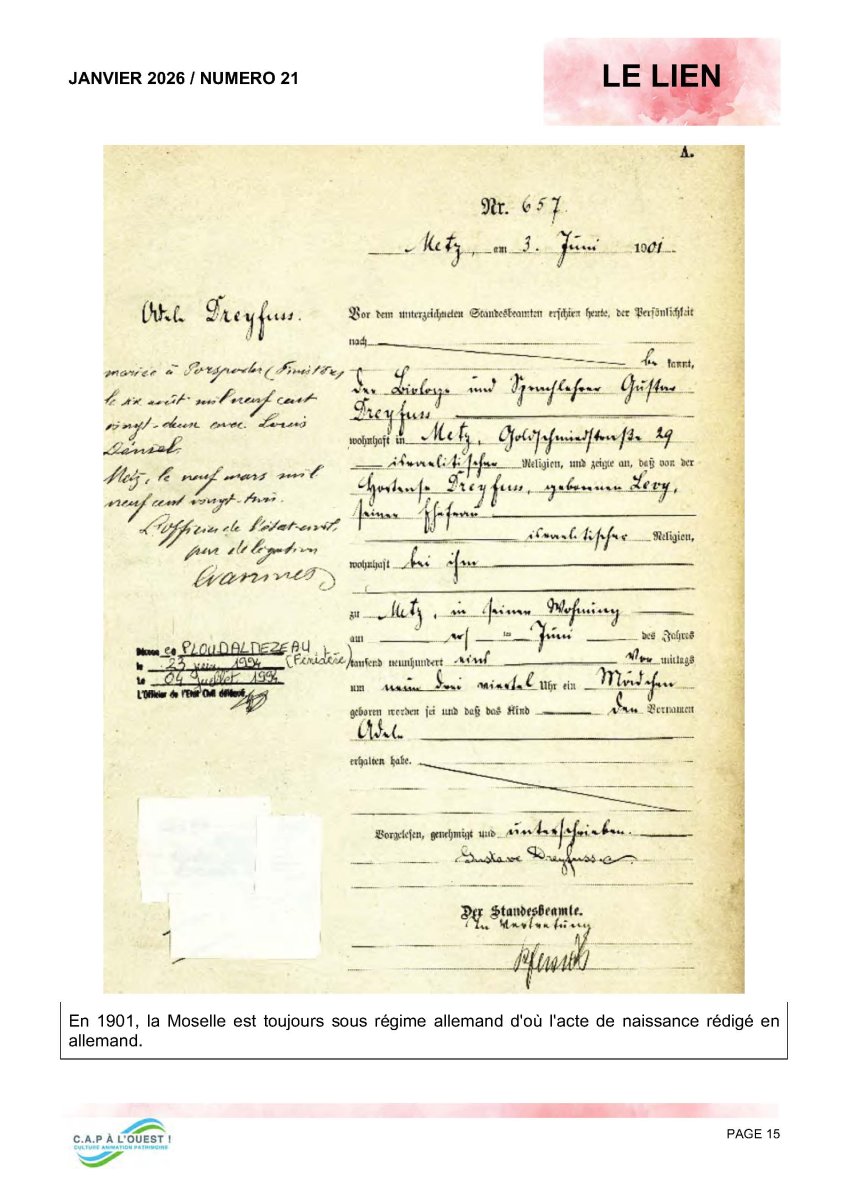 JANVIER 2026 / NUMERO 21
LE LIEN
A.
Nr. 657.
Metz, am 3. Juni 1901.
Adele Dreyfuss.
mariée à Porspoder (Finistère)
le xx août mil neuf cent
vingt-deux avec Louis
Dénsel.
Metz, le neuf mars mil
neuf cent vingt-trois.
L'officier de l'état-civil,
par délégation
PLOUDALDEZEAU
le 23 juin 1994 (Finistère)
Le 04 Juillet 1994
L'Officier de l'Etat Civil délégué,
Vor dem unterzeichneten Standesbeamten erschien heute, der Persönlichkeit
nach
be kannt,
der Biologe und Sprachlehrer Gustav
Dreyfuss
wohnhaft in Metz, Goldschmiedstraße 29
israelitischer Religion, und zeigte an, daß von der
Hortense Dreyfuss, geborenen Levy,
seiner Ehefrau
israelitischer Religion,
wohnhaft bei ihm
zu Metz, in seiner Wohnung
am ersten Juni des Jahres
tausend neunhundert eins Vor mittags
um neun drei viertel Uhr ein Mädchen
geboren worden sei und daß das Kind den Vornamen
Adele
erhalten habe.
Vorgelesen, genehmigt und unterschrieben.
Gustave Dreyfuss
Der Standesbeamte.
In Vertretung
En 1901, la Moselle est toujours sous régime allemand d'où l'acte de naissance rédigé en
allemand.
C.A.P À L'OUEST !
CULTURE ANIMATION PATRIMOINE
PAGE 15